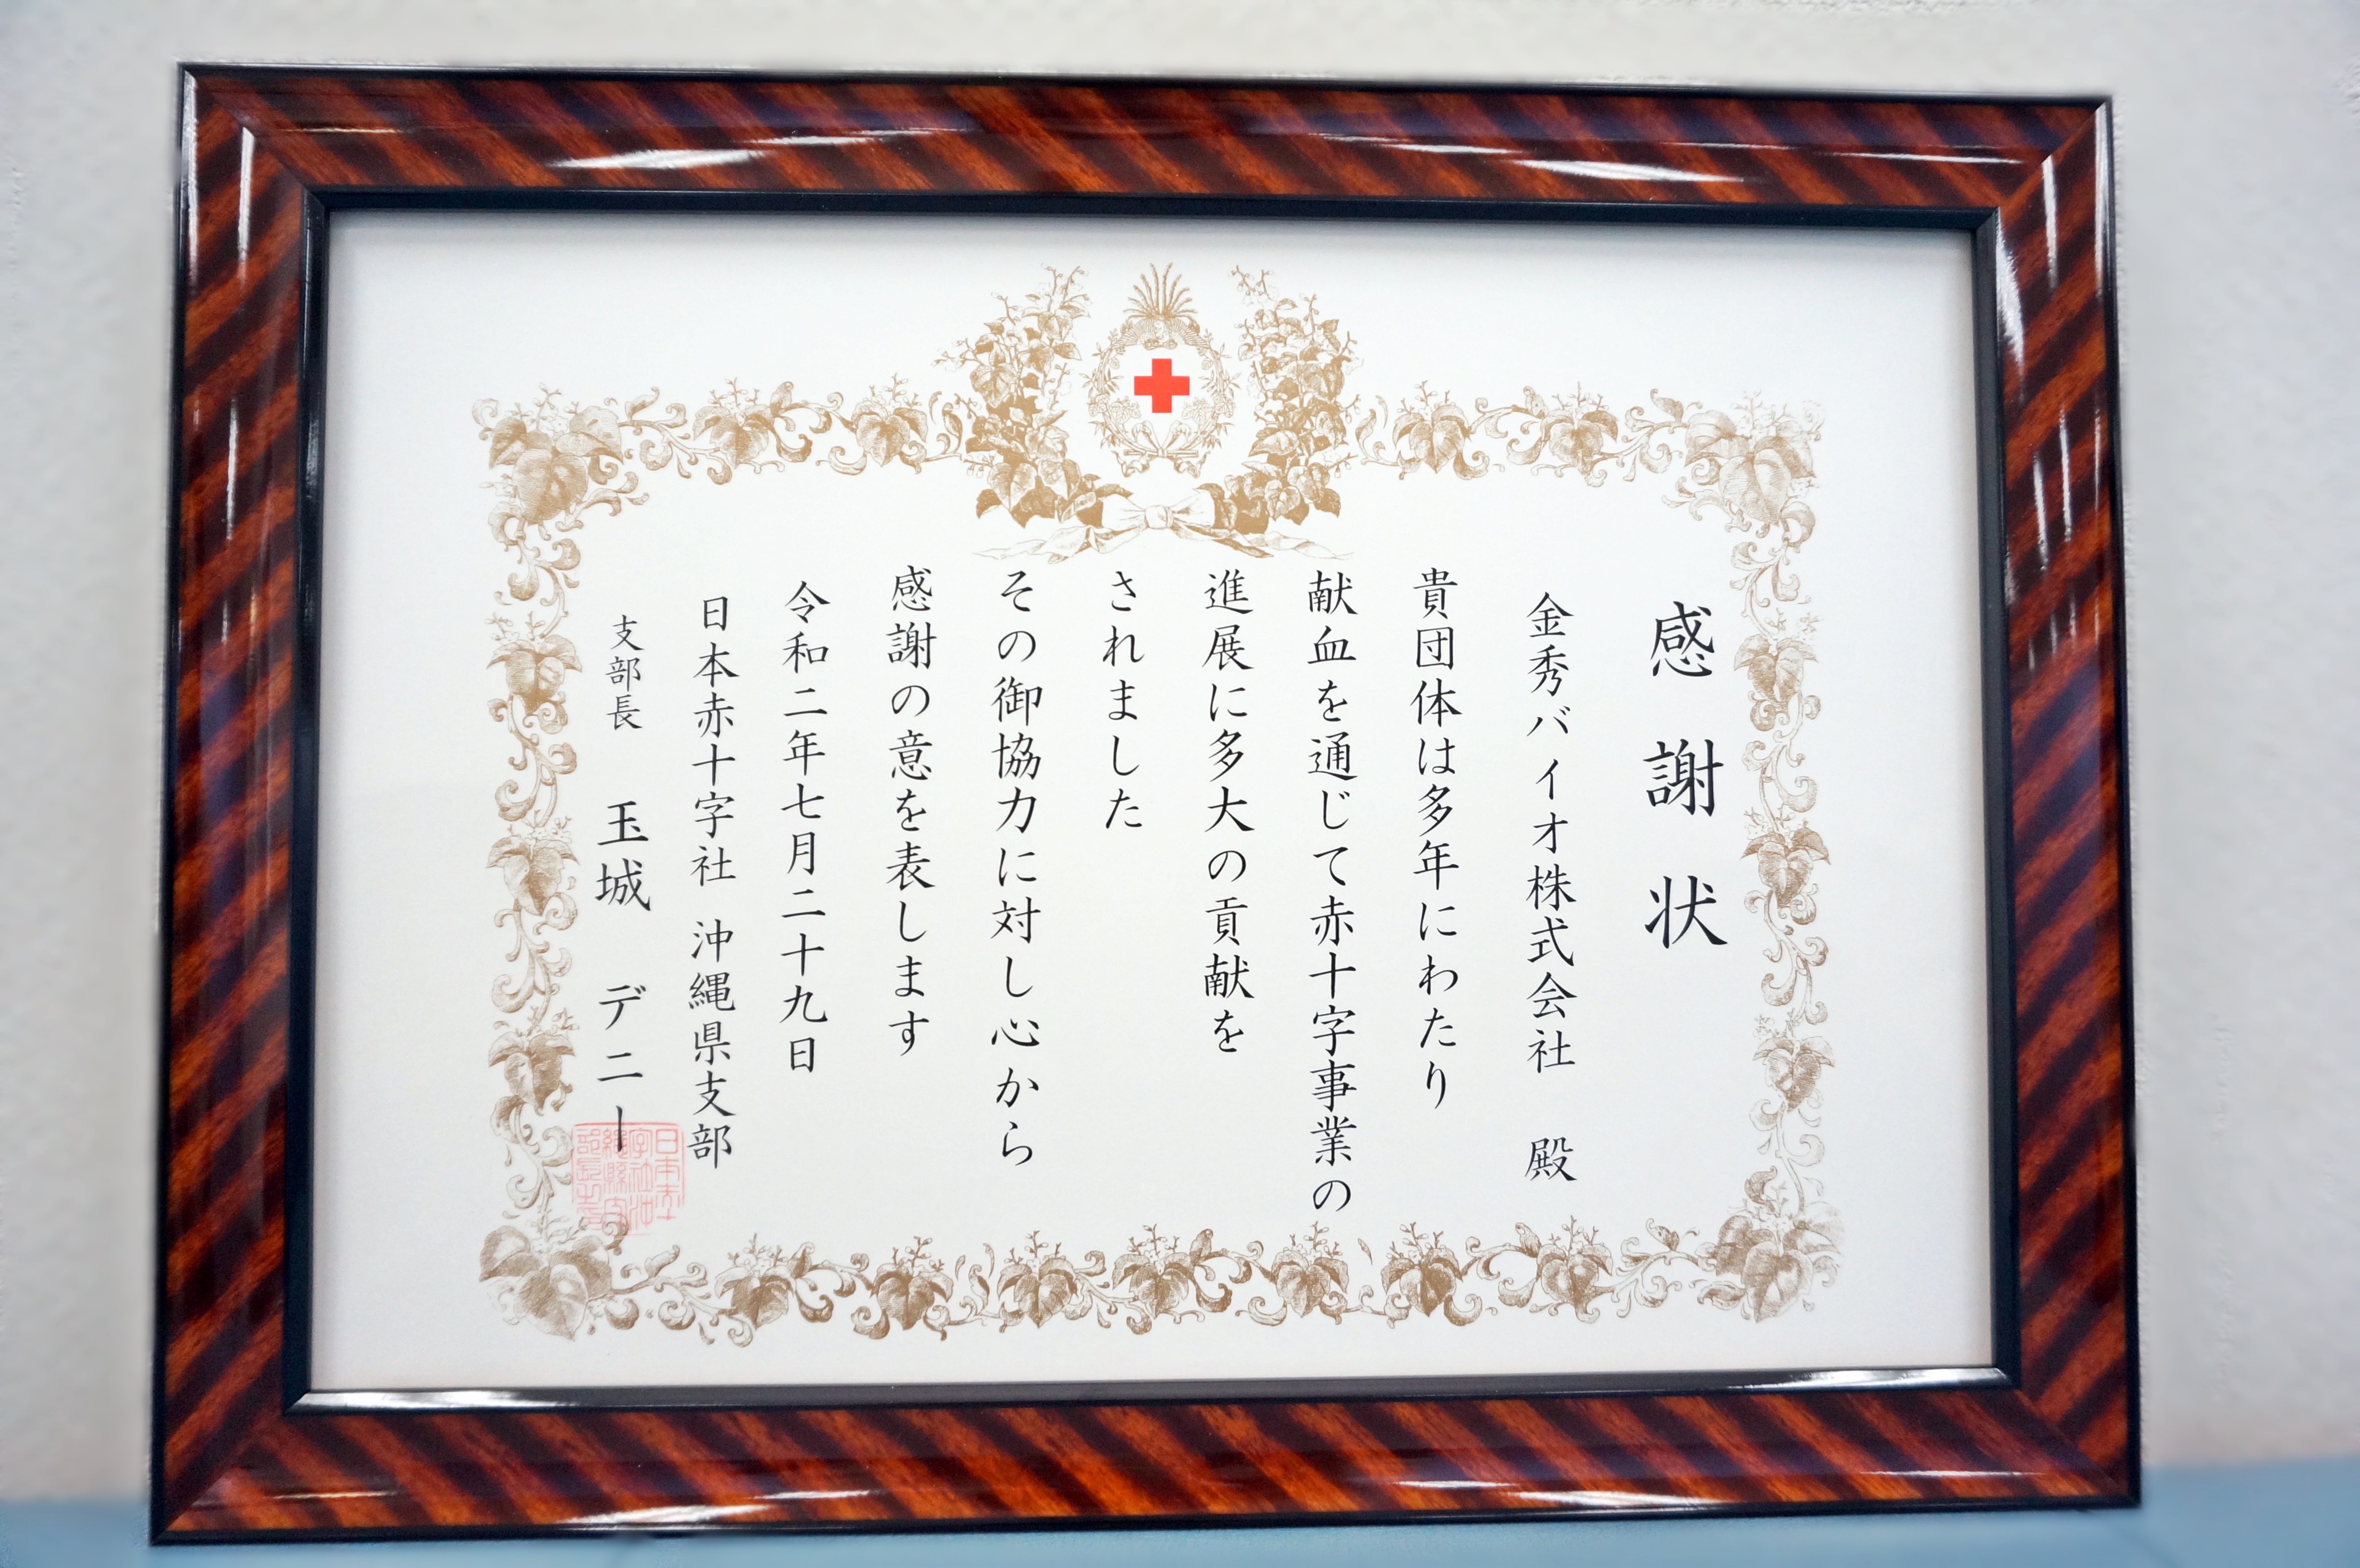 感謝状
金秀バイオ株式会社 殿
貴団体は多年にわたり
献血を通じて赤十字事業の
進展に多大の貢献を
されました
その御協力に対し心から
感謝の意を表します
令和二年七月二十九日
日本赤十字社 沖縄県支部
支部長 玉城 デニー